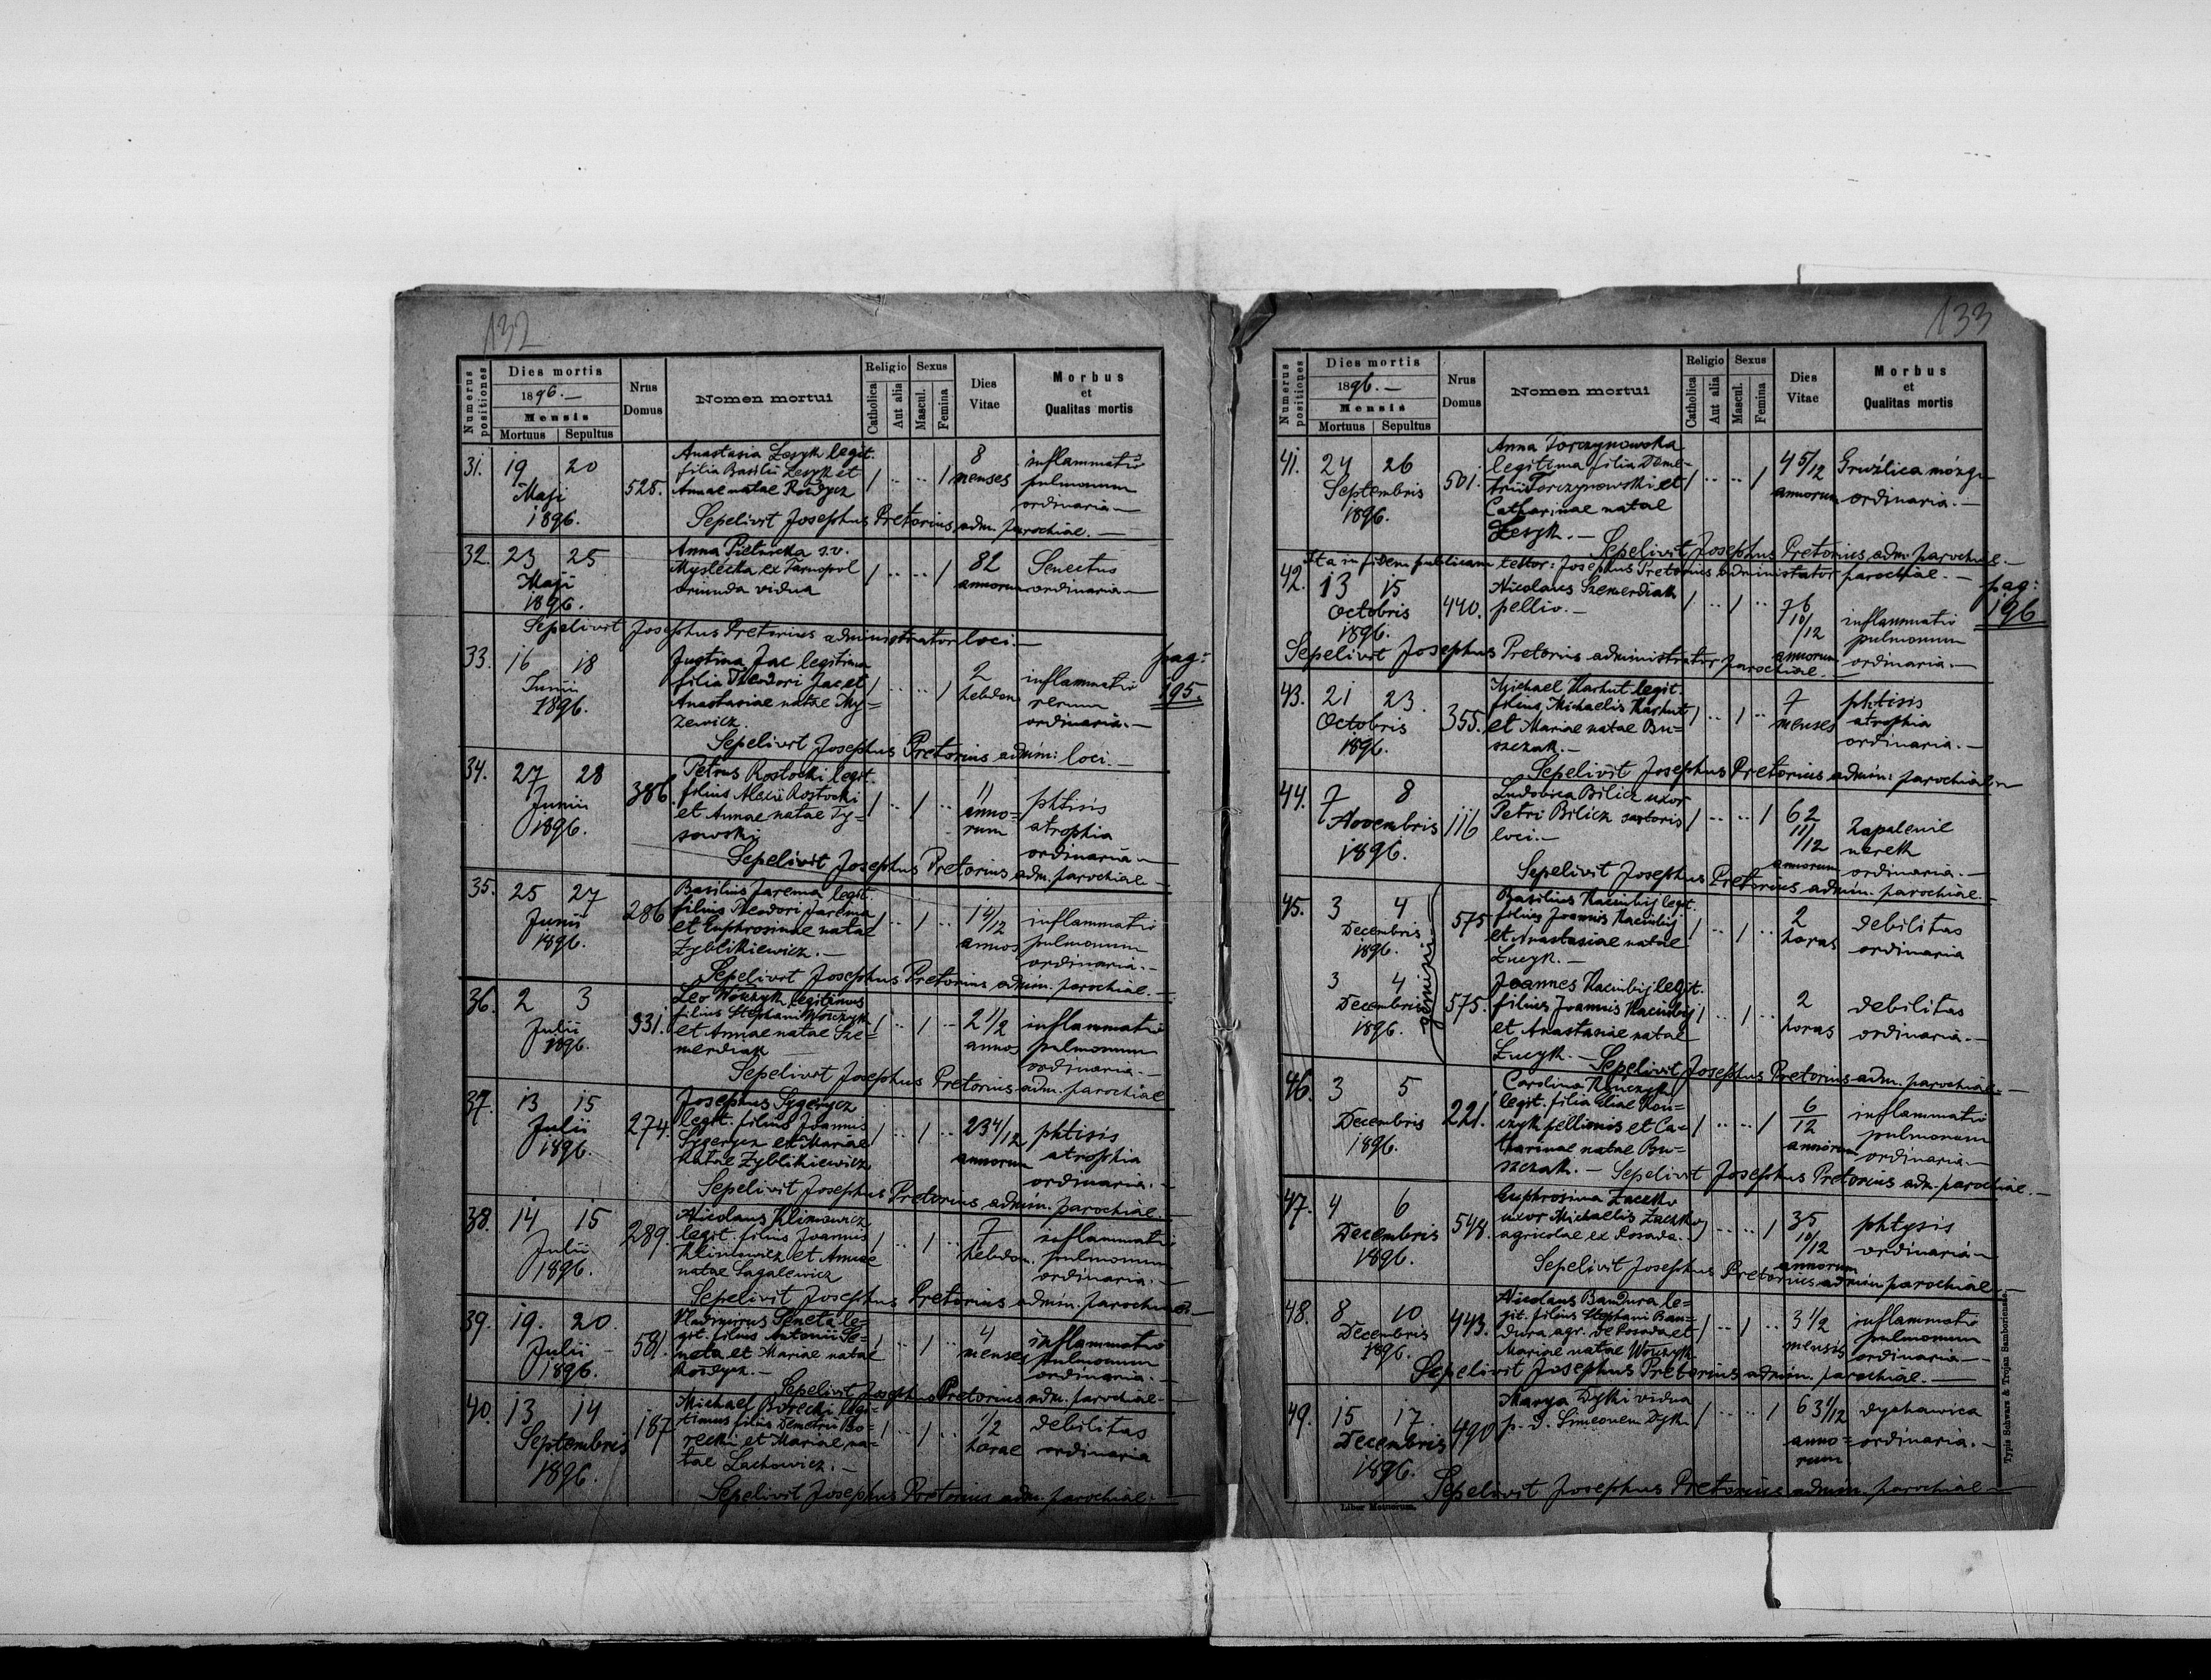 132
Numerus positiones
Dies mortis
1896. —
Mensis
Mortuus Sepultus
Nrus Domus
Nomen mortui
Religio
Catholica
Aut alia
Sexus
Mascul.
Femina
Dies Vitae
Morbus
et
Qualitas mortis
31. 19 20 Maji 1896. 528.
Anastasia Łesyk legit.
filia Basilii Łesyk et
Annae natae Rozdycz
8 menses
inflammatio
pulmonum
ordinaria —
Sepelivit Josephus Pretorius adm. parochiae. —
32. 23 25 Maji 1896.
Anna Pietnicka s.v.
Myslecka ex Tarnopol
oriunda vidua
82 annorum
Senectus
ordinaria —
Sepelivit Josephus Pretorius administrator loci. —
33. 16 18 Junii 1896.
Justina Jac legitima
filia Theodori Jac et
Anastasiae natae My=
zewicz.
2 hebdom.
inflammatio
renum
ordinaria. —
pag:
195.
Sepelivit Josephus Pretorius admin: loci. —
34. 27 28 Junii 1896. 386.
Petrus Rostocki legit.
filius Alexii Rostocki
et Annae natae Ty=
sowski
11 anno=
rum
phtisis
atrophia
ordinaria —
Sepelivit Josephus Pretorius adm. parochiae —
35. 25 27 Junii 1896. 286
Basilius Jarema legit.
filius Theodori Jarema
et Euphrosinae natae
Zyblikiewicz. —
1 4/12 annos
inflammatio
pulmonum
ordinaria. —
Sepelivit Josephus Pretorius admin. parochiae. —
36. 2 3 Julii 1896. 331.
Leo Wowczyk legitimus
filius Stephani Wowczyk
et Annae natae Sze=
merdiak
2 1/2 annos
inflammatio
pulmonum
ordinaria. —
Sepelivit Josephus Pretorius adm. parochiae
37. 13 15 Julii 1896. 274.
Josephus Sygerycz
legit. filius Joannis
Sygerycz et Mariae
natae Zyblikiewicz
23 4/12 annorum
phtisis
atrophia
ordinaria. —
Sepelivit Josephus Pretorius admin. parochiae. —
38. 14 15 Julii 1896. 289.
Nicolaus Klimowicz
legit. filius Joannis
Klimowicz et Annae
natae Sagalewicz
7 hebdom.
inflammatio
pulmonum
ordinaria. —
Sepelivit Josephus Pretorius admin. parochiae —
39. 19. 20. Julii 1896. 581.
Vladimirus Seneta le=
git. filius Antonii Se=
neta et Mariae natae
Rozdycz. —
4 menses
inflammatio
pulmonum
ordinaria. —
Sepelivit Josephus Pretorius adm. parochiae —
40. 13 14 Septembris 1896. 187
Michael Borecki legi=
timus filius Demetrii Bo=
recki et Mariae na=
tae Lachowicz. —
1/2 horae
debilitas
ordinaria
Sepelivit Josephus Pretorius adm. parochiae. —
133
Numerus positiones
Dies mortis
1896. —
Mensis
Mortuus Sepultus
Nrus Domus
Nomen mortui
Religio
Catholica
Aut alia
Sexus
Mascul.
Femina
Dies Vitae
Morbus
et
Qualitas mortis
41. 24 26 Septembris 1896. 501.
Anna Torczynowska
legitima filia Deme=
trii Torczynowski et
Catharinae natae
Łesyk. —
4 5/12 annorum
Gruźlica mózgu
ordinaria. —
Sepelivit Josephus Pretorius adm. parochiae. —
Ita in fidem publicam testor: Josephus Pretorius administrator parochiae. —
42. 13 15 Octobris 1896. 440.
Nicolaus Szemerdiak
pellio. —
76 10/12 annorum
inflammatio
pulmonum
ordinaria. —
pag:
196
Sepelivit Josephus Pretorius administrator parochiae. —
43. 21 23. Octobris 1896. 355.
Michael Karhut legit.
filius Michaelis Karhut
et Mariae natae Bu=
szczak. —
7 menses
phtisis
atrophia
ordinaria. —
Sepelivit Josephus Pretorius admin: parochiae —
44. 7 8 Novembris 1896. 116
Ludovica Bilicz uxor
Petri Bilicz sartoris
loci. —
62 11/12 annorum
Zapalenie
nerek
ordinaria. —
Sepelivit Josephus Pretorius admin. parochiae. —
45. 3 4 Decembris 1896. 575
Basilius Kacinbij legit.
filius Joannis Kacinbij
et Anastasiae natae
Łucyk. —
2 horas
debilitas
ordinaria
gemini
3 4 Decembris 1896. 575.
Joannes Kacinbij legit.
filius Joannis Kacinbij
et Anastasiae natae
Łucyk. —
2 horas
debilitas
ordinaria. —
Sepelivit Josephus Pretorius adm. parochiae. —
46. 3 5 Decembris 1896. 221.
Carolina Konczyk
legit. filia Eliae Kon=
czyk pellionis et Ca=
tharinae natae Bu=
szczak. —
6/12 annorum
inflammatio
pulmonum
ordinaria. —
Sepelivit Josephus Pretorius adm. parochiae. —
47. 4 6 Decembris 1896. 548.
Euphrosina Zaczko
uxor Michaelis Zaczko
agricolae ex Posada.
35 10/12 annorum
phtysis
ordinaria —
Sepelivit Josephus Pretorius admin. parochiae —
48. 8 10 Decembris 1896. 443.
Nicolaus Bandura le=
git. filius Stephani Ban=
dura agr. de Posada et
Mariae natae Wowczyk
3 1/2 mensis
inflammatio
pulmonum
ordinaria —
Sepelivit Josephus Pretorius admin. parochiae. —
49. 15 17. Decembris 1896. 490
Marya Dytki vidua
p. d. Simeonem Dytki
63 1/12 anno=
rum
dychawica
ordinaria. —
Sepelivit Josephus Pretorius admin. parochiae —
Liber Mortuorum.
Typis Schwarz & Trojan Samboriense.